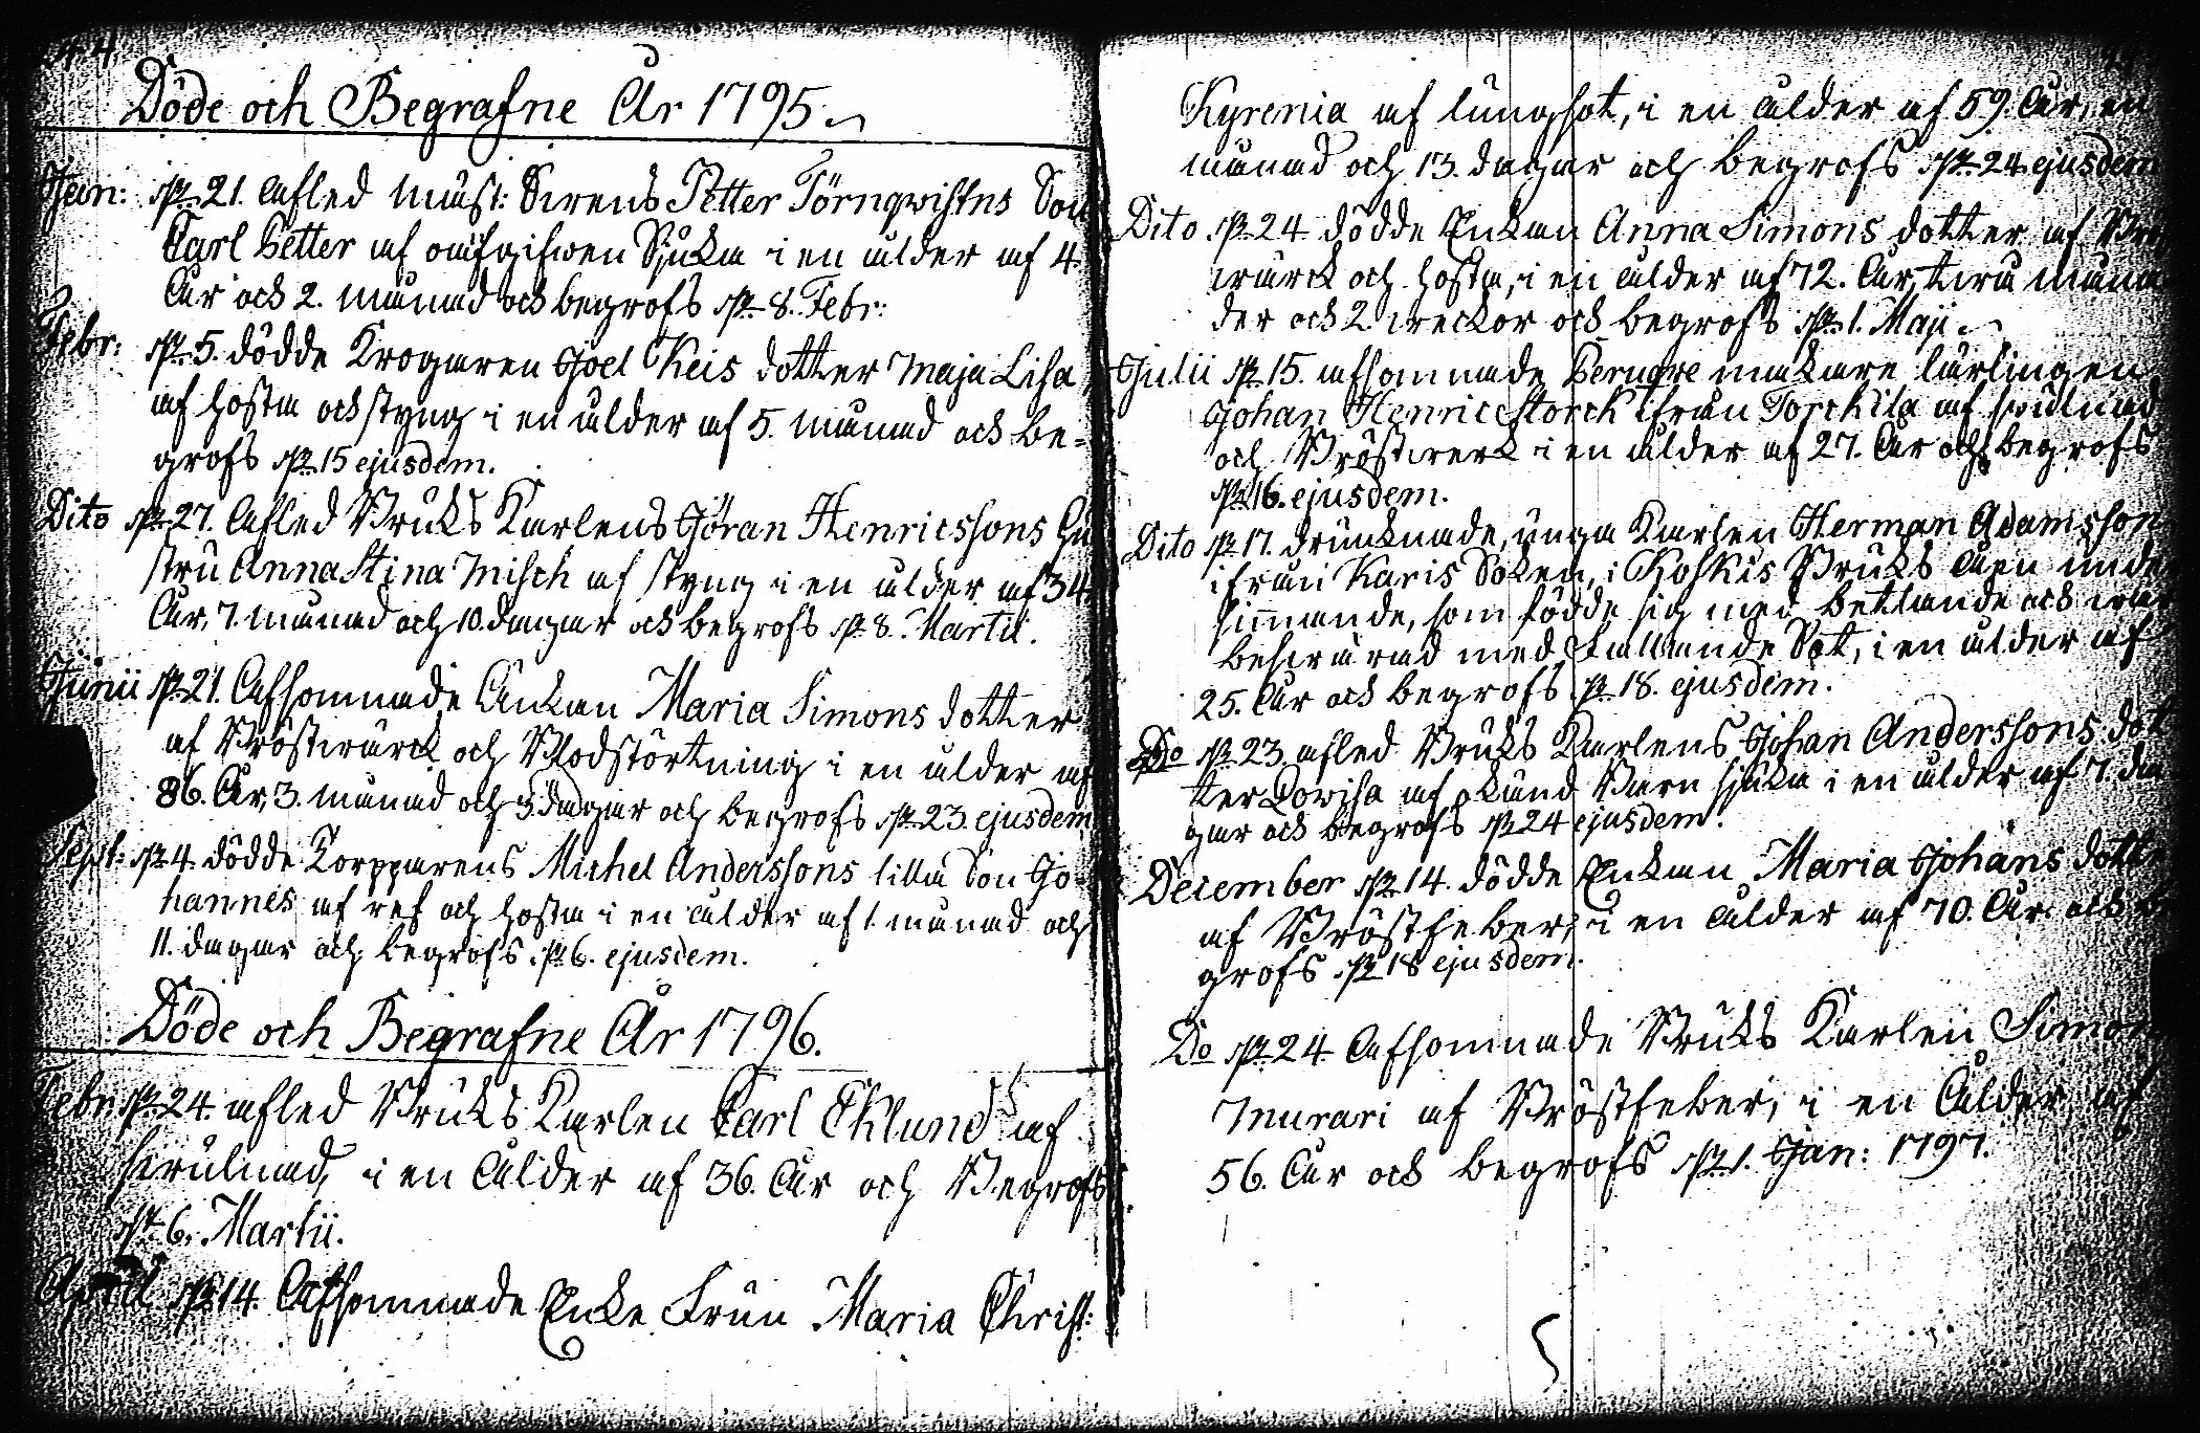 44
Döde och Begrafne År 1795.
Jan: d. 21. afled Must: Svens Petter Törnqwistns Son
Carl Petter af outgifwen Sjuka i en ålder af 4.
År och 2. månad och begrofs d. 8. Febr:
Febr: d. 5. dödde Krogaren Joel Keis dotter Maja Lisa
af hosta och styng i en ålder af 5. månad och be-
grofs d. 15 ejusdem.
Dito d. 27. Afled Bruks Karlens Jöran Henricssons Hu
stru Anna Stina Misch af styng i en ålder af 34
År, 7. månad och 10. dagar och begrofs d. 8. Martii.
Junii d. 21. Afsomnade Änkan Maria Simons dotter
af Bröstwärck och Blodstörtning i en ålder af
86. År, 3. månad och 3. dagar och begrofs d. 23. ejusdem
Sept: d. 4. dödde Torpparens Michel Anderssons lilla Son Jo-
hannes af ref och hosta i en ålder af 1. månad och
11. dagar och begrofs d. 6. ejusdem.
Döde och Begrafne År 1796.
Febr: d. 24. afled Bruks Karlen Carl Eklund af
swulnad, i en Ålder af 36. År och Begrofs
d. 6. Martii.
April d. 14. Afsomnade Enke Frun Maria Christ:
Kyrenia af lungsot, i en ålder af 59. År, en
månad och 13. dagar och begrofs d. 24 ejusdem
Dito d. 24. dödde Enkan Anna Simons dotter af Brö
wärck och hosta, i en ålder af 72. År, twå måna
der och 2. weckor och begrofs d. 1. Maji.
Julii d. 15. afsomnade Beragre makare lärlingen
Johan Henric Storck ifrån Torckila af swulnad
och Bröstwerk i en ålder af 27. År och begrofs
d. 16. ejusdem.
Dito d. 17. drunknade, unga Karlen Herman Adamsson
ifrån Karis Soken, i Koskis Bruks Åen unde
simmande, som födde sig med bettlande och war
beswärad med Fallande Sot, i en ålder af
25. År och begrofs d. 18. ejusdem.
Do d. 23. afled Bruks Karlens Johan Anderssons dot
ter Lovisa af okänd Barn sjuka i en ålder af 7. da
gar och begrofs d. 24 ejusdem.
December d. 14. dödde Enkan Maria Johans dotte
af Bröstfeber, i en ålder af 70. År och be
grofs d. 18 ejusdem.
Do d. 24 Afsomnade Bruks Karlen Simon
Murari af Bröstfeber, i en Ålder af
56. År och begrofs d. 1. Jan: 1797.